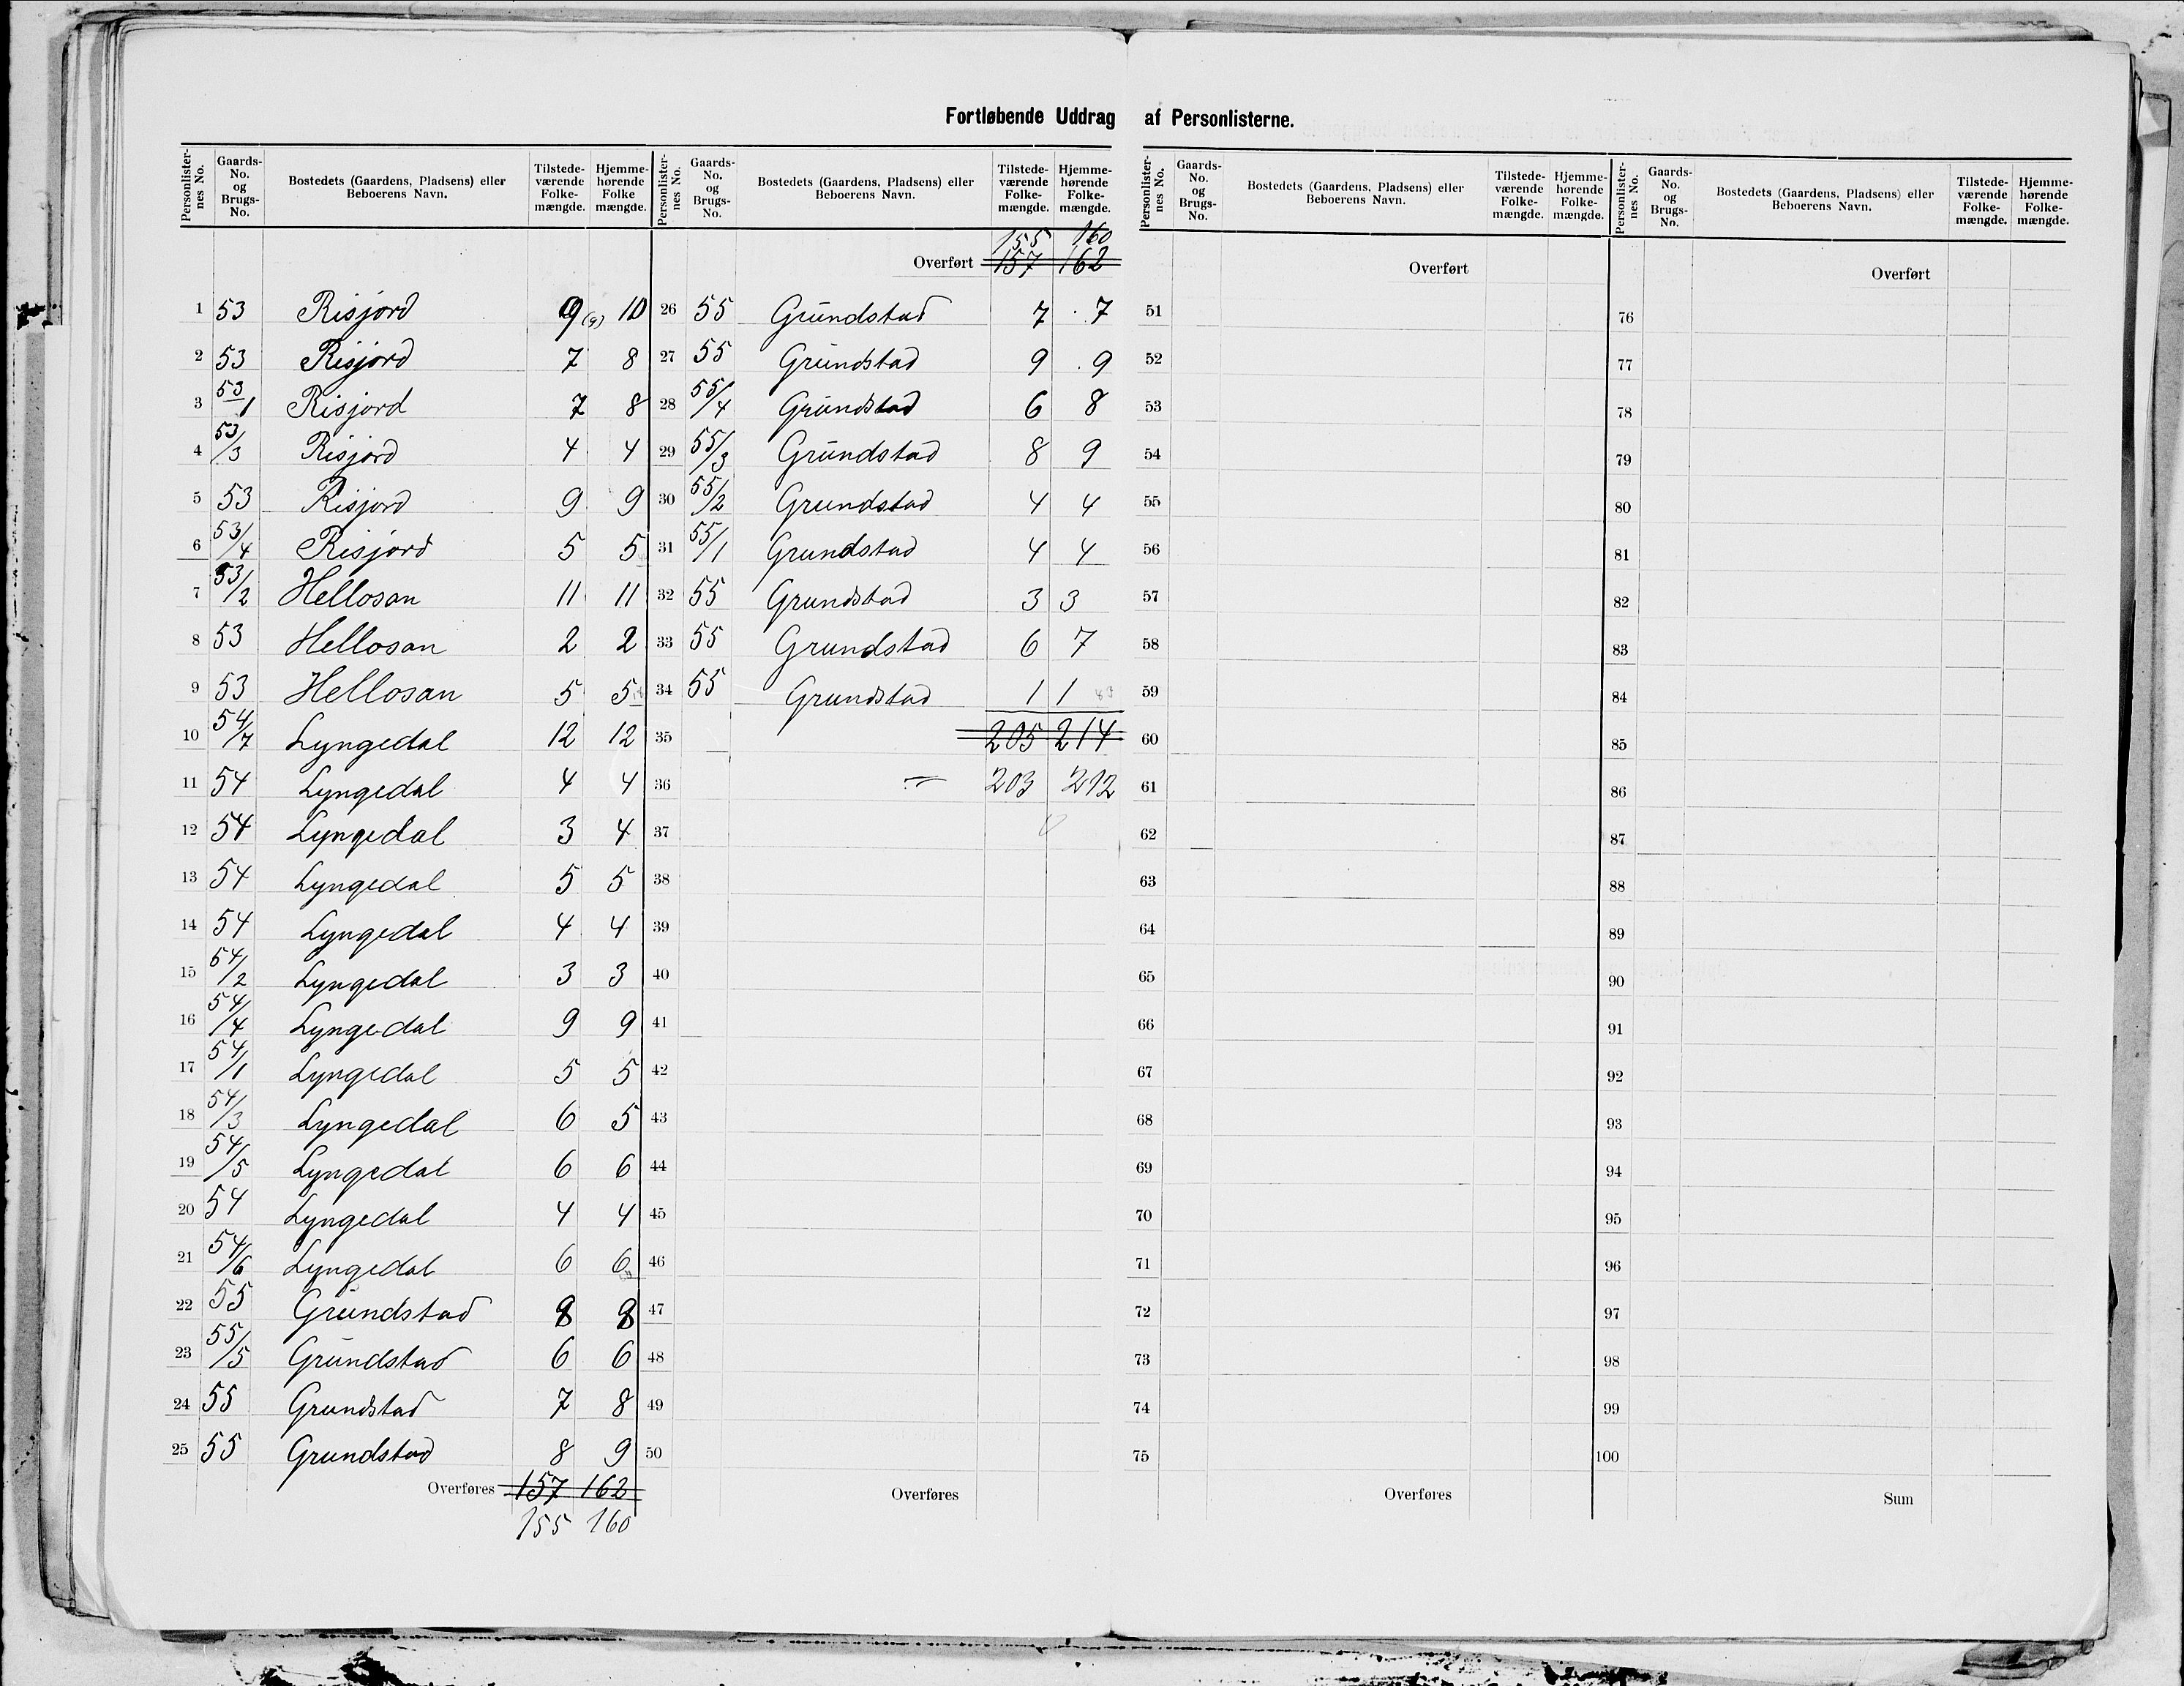 Fortløbende Uddrag af Personlisterne.
Personlister-nes No. Gaards-No. og Brugs-No. Bostedets (Gaardens, Pladsens) eller Beboerens Navn. Tilstede-værende Folke-mængde. Hjemme-hørende Folke mængde.
1 53 Risjord 9 (9) 10
2 53 Risjord 7 8
3 53/1 Risjord 7 8
4 53/3 Risjord 4 4
5 53 Risjord 9 9
6 53/4 Risjord 5 5
7 53/2 Hellosan 11 11
8 53 Hellosan 2 2
9 53 Hellosan 5 5
10 54/7 Lyngedal 12 12
11 54 Lyngedal 4 4
12 54 Lyngedal 3 4
13 54 Lyngedal 5 5
14 54 Lyngedal 4 4
15 54/2 Lyngedal 3 3
16 54/4 Lyngedal 9 9
17 54/1 Lyngedal 5 5
18 54/3 Lyngedal 6 5
19 54/5 Lyngedal 6 6
20 54 Lyngedal 4 4
21 54/6 Lyngedal 6 6
22 55 Grundstad 8 8
23 55/5 Grundstad 6 6
24 55 Grundstad 7 8
25 55 Grundstad 8 9
Overføres 157 162
155 160
Personlister-nes No. Gaards-No. og Brugs-No. Bostedets (Gaardens, Pladsens) eller Beboerens Navn. Tilstede-værende Folke-mængde. Hjemme-hørende Folke-mængde.
155 160
Overført 157 162
26 55 Grundstad 7 7
27 55 Grundstad 9 9
28 55/4 Grundstad 6 8
29 55/3 Grundstad 8 9
30 55/2 Grundstad 4 4
31 55/1 Grundstad 4 4
32 55 Grundstad 3 3
33 55 Grundstad 6 7
34 55 Grundstad 1 1
35 205 214
36 203 212
37
38
39
40
41
42
43
44
45
46
47
48
49
50
Overføres
Personlister-nes No. Gaards-No. og Brugs-No. Bostedets (Gaardens, Pladsens) eller Beboerens Navn. Tilstede-værende Folke-mængde. Hjemme-hørende Folke-mængde.
Overført
51
52
53
54
55
56
57
58
59
60
61
62
63
64
65
66
67
68
69
70
71
72
73
74
75
Overføres
Personlister-nes No. Gaards-No. og Brugs-No. Bostedets (Gaardens, Pladsens) eller Beboerens Navn. Tilstede-værende Folke-mængde. Hjemme-hørende Folke-mængde.
Overført
76
77
78
79
80
81
82
83
84
85
86
87
88
89
90
91
92
93
94
95
96
97
98
99
100
Sum